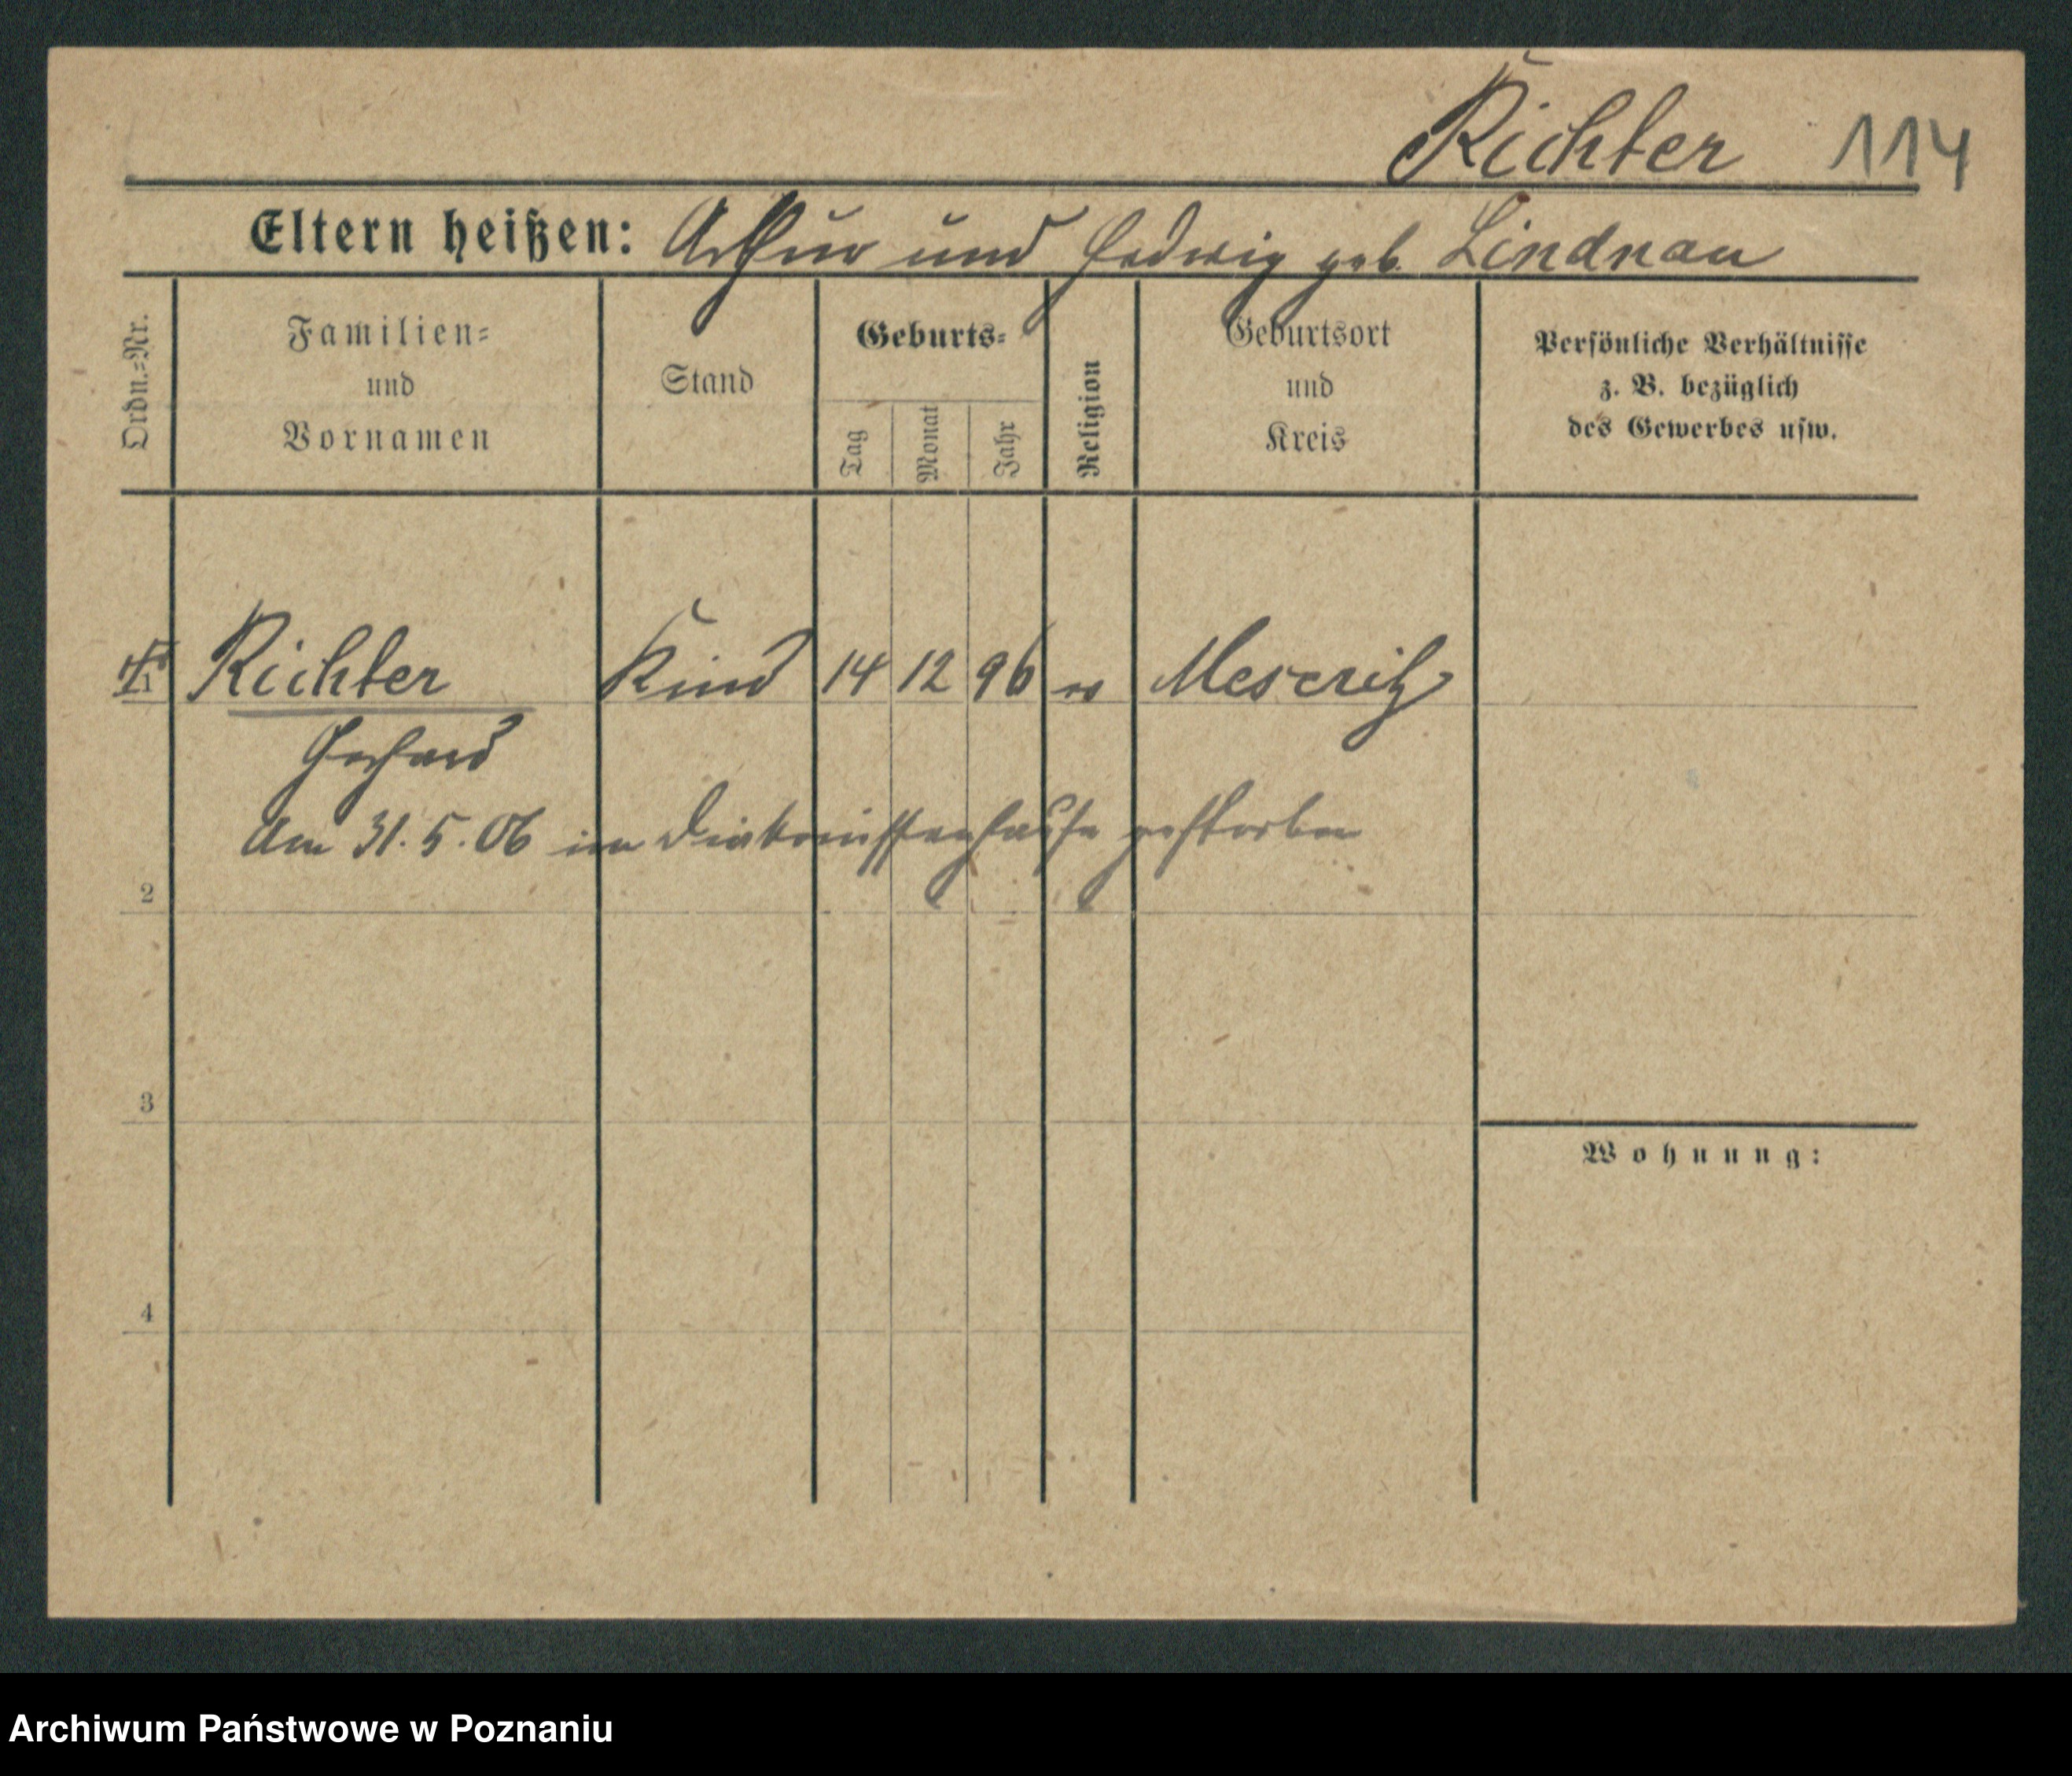 Richter 114
Eltern heißen: Arthur und Hedwig geb. Lindnau
Ordn.=Nr.
Familien=
und
Vornamen
Stand
Geburts=
Tag
Monat
Jahr
Religion
Geburtsort
und
Kreis
Persönliche Verhältnisse
z. B. bezüglich
des Gewerbes usw.
1 Richter Kind 14 12 96 Meseritz
Gerhard
Am 31.5.06 im Diakonissenhause gestorben
2
3
Wohnung:
4
Archiwum Państwowe w Poznaniu